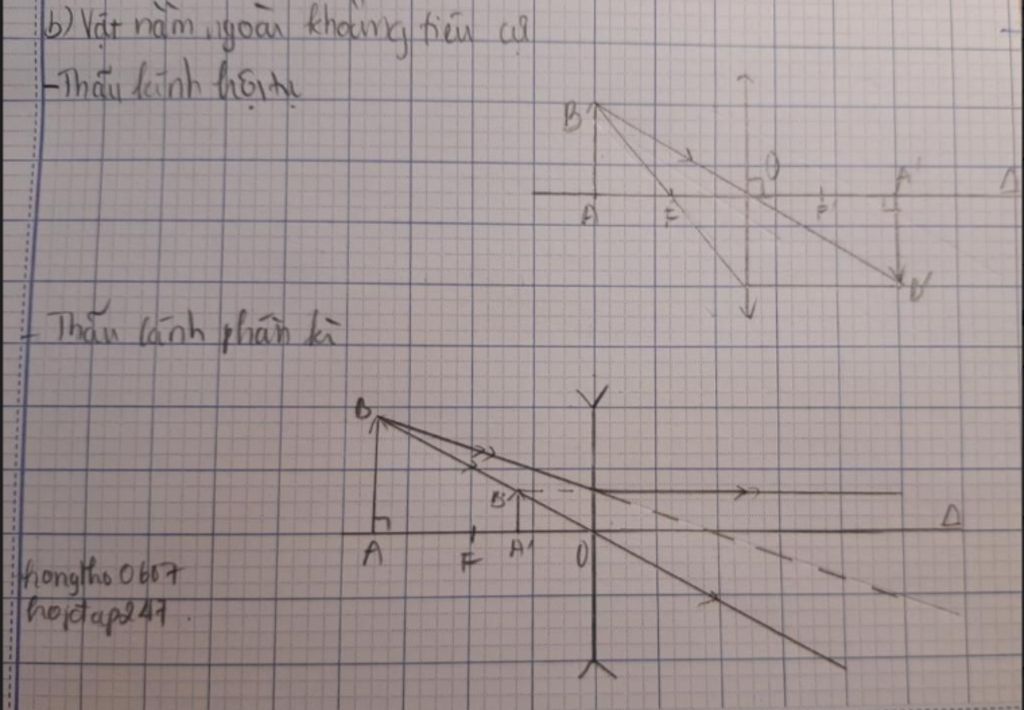 b) Vật nằm ngoài khoảng tiêu cự
- Thấu kính hội tụ
B
O
A'
Δ
A
F
F'
B'
- Thấu kính phân kì
B
B'
Δ
A
F
A'
O
hongtho0607
hoidap247.